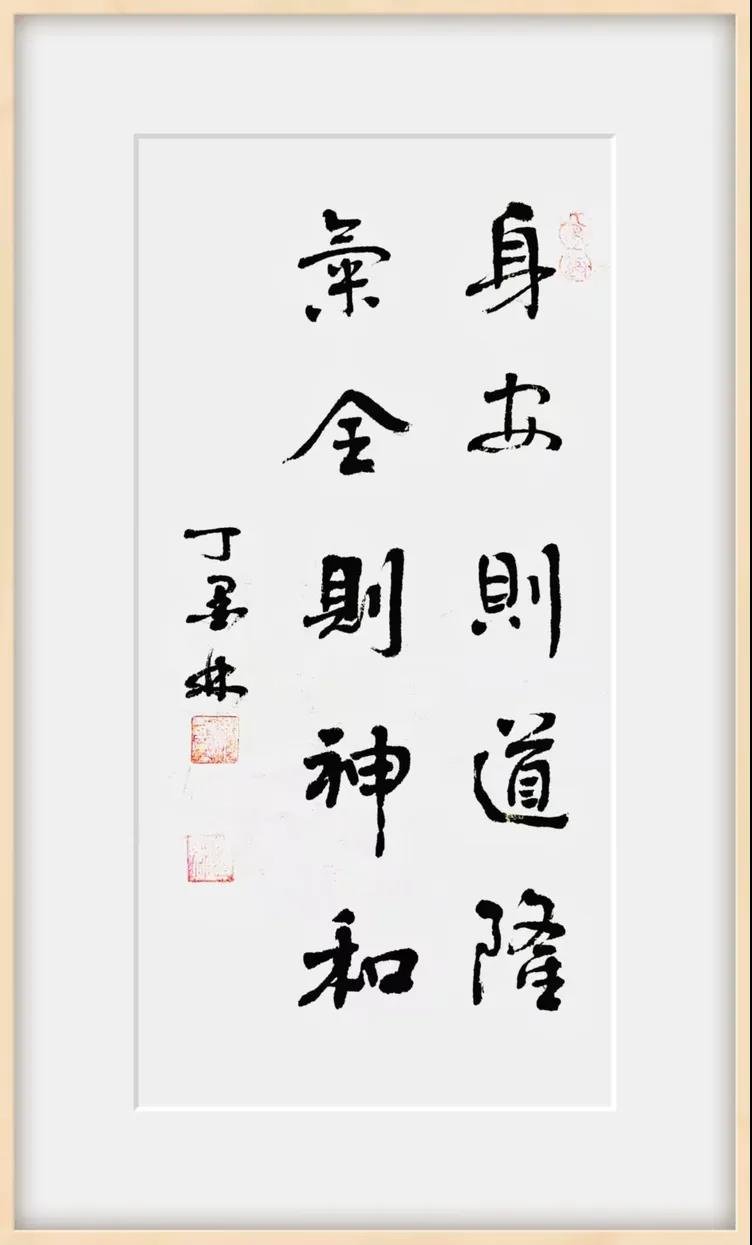 身安則道隆
氣全則神和
丁墨林